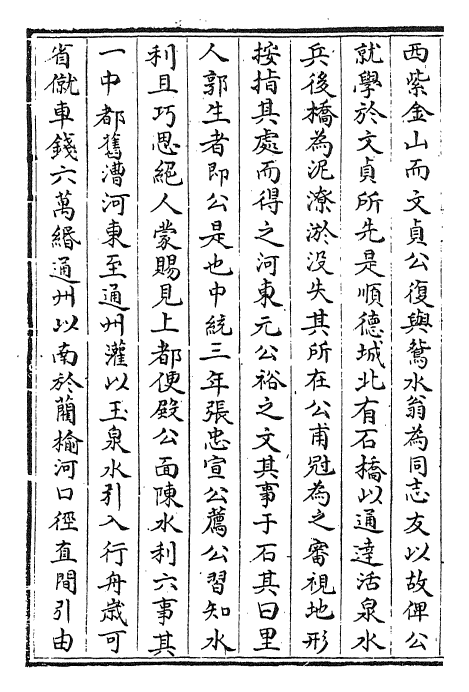 西紫金山而文貞公復與鴛水翁為同志友以故俾公
就學於文貞所先是順德城北有石橋以通達活泉水
兵後橋為泥潦淤没失其所在公甫冠為之審視地形
按指其處而得之河東元公裕之文其事于石其曰里
人郭生者即公是也中統三年張忠宣公薦公習知水
利且巧思絕人蒙賜見上都便殿公面陳水利六事其
一中都舊漕河東至通州灌以玉泉水引入行舟歲可
省僦車錢六萬緡通州以南於藺榆河口徑直開引由